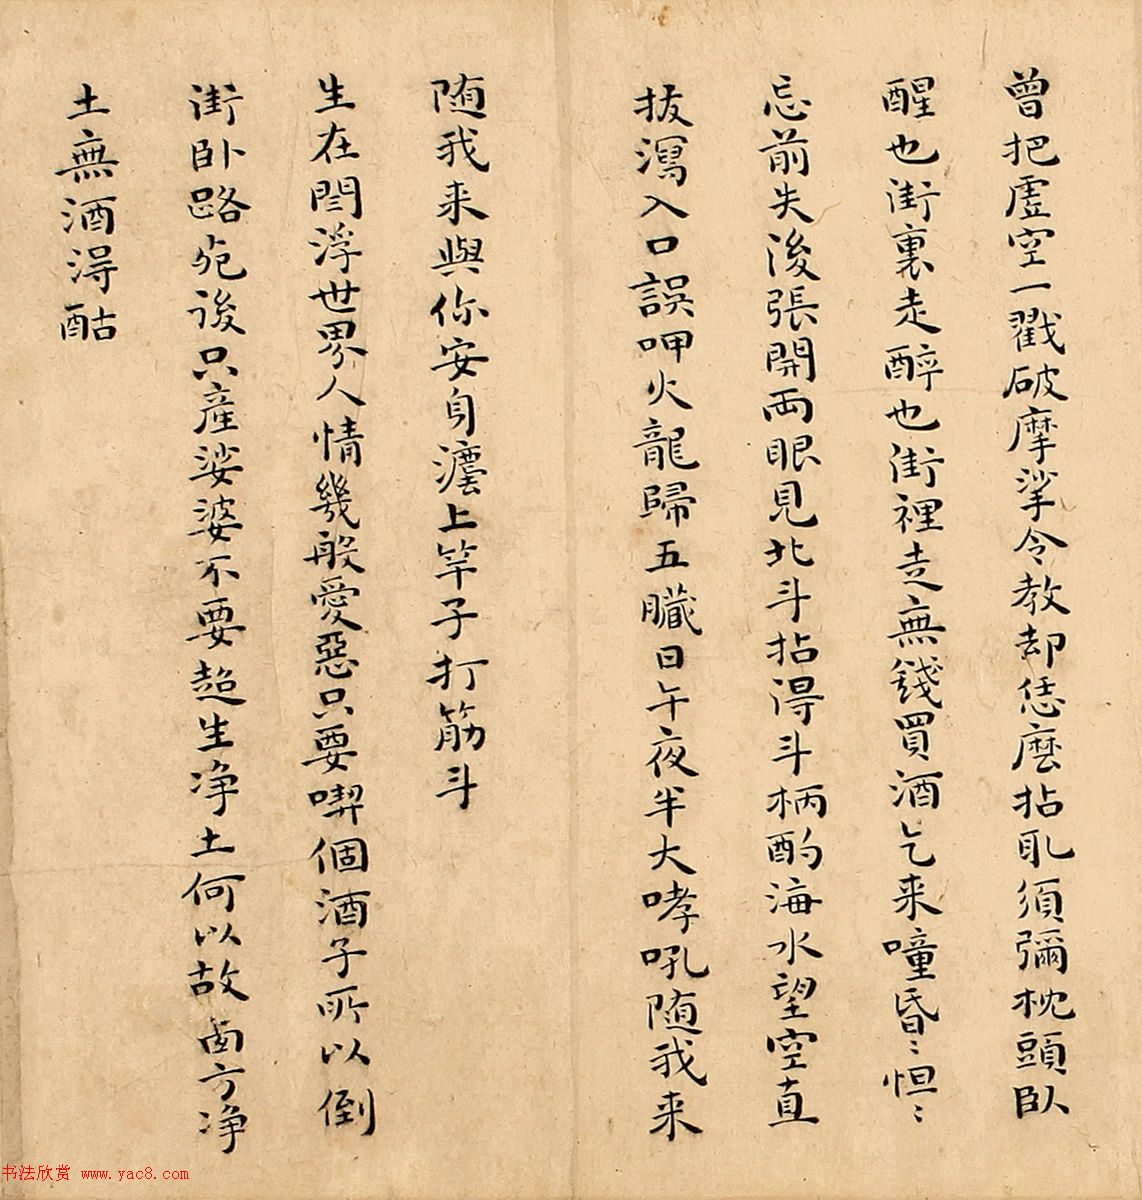 曾把虛空一戳破摩挲令教却恁麽拈取須彌枕頭臥
醒也街裏走醉也街裡走無錢買酒乞来噇昏〻怛〻
忘前失後張開兩眼見北斗拈得斗柄酌海水望空直
拔瀉入口誤呷火龍歸五臟日午夜半大哮吼随我来
随我来與你安身瀍上竿子打筋斗
生在閻浮世界人情幾般愛惡只要喫個酒子所以倒
街卧路死後只産娑婆不要超生净土何以故西方净
土無酒得酤
书法欣赏 www.yac8.com